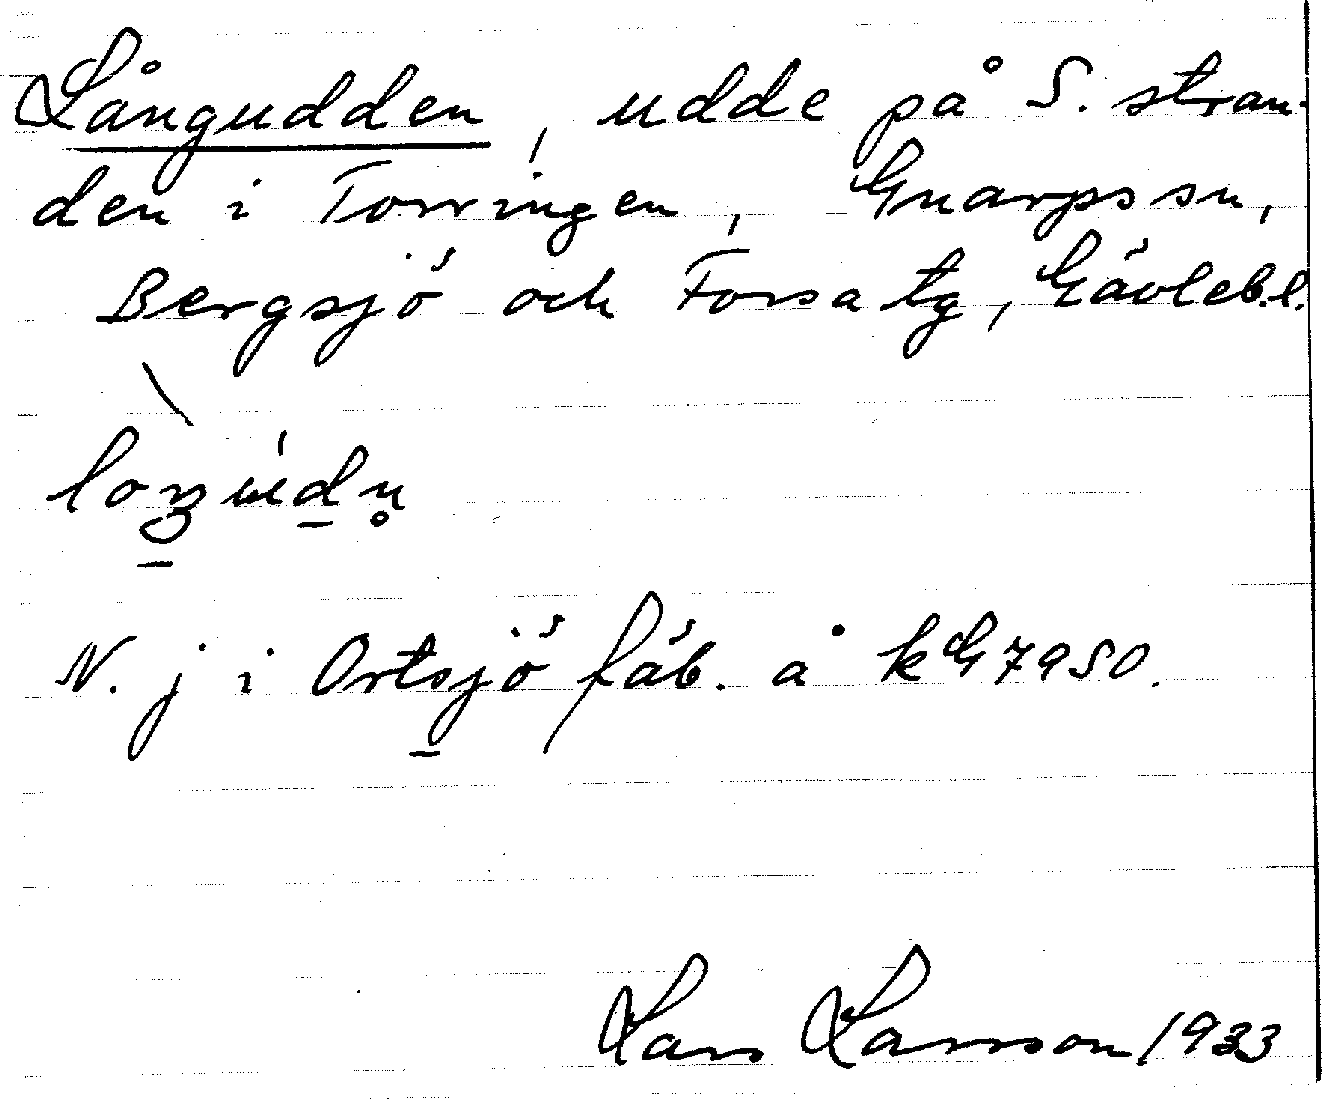 Långudden, udde på S. stran-
den i Torringen, Gnarps sn,
Bergsjö och Forsa tg, Gävleb.l.
N. j i Ortsjö fäb. å kG7950.
Lars Larsson 1933